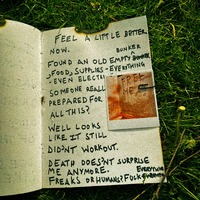 FEEL A LITTLE BETTER
NOW.
BUNKER
FOUND AN OLD EMPTY
FOOD, SUPPLIES - EVERYTHING
- EVEN ELECTRI
SOMEONE REALL
PREPARED FOR
ALL THIS?
WELL LOOKS
LIKE IT STILL
DIDN'T WORKOUT.
DEATH DOESN'T SURPRISE
ME ANYMORE.
FREAKS OR HUMANS? FUCK EVERYTHING